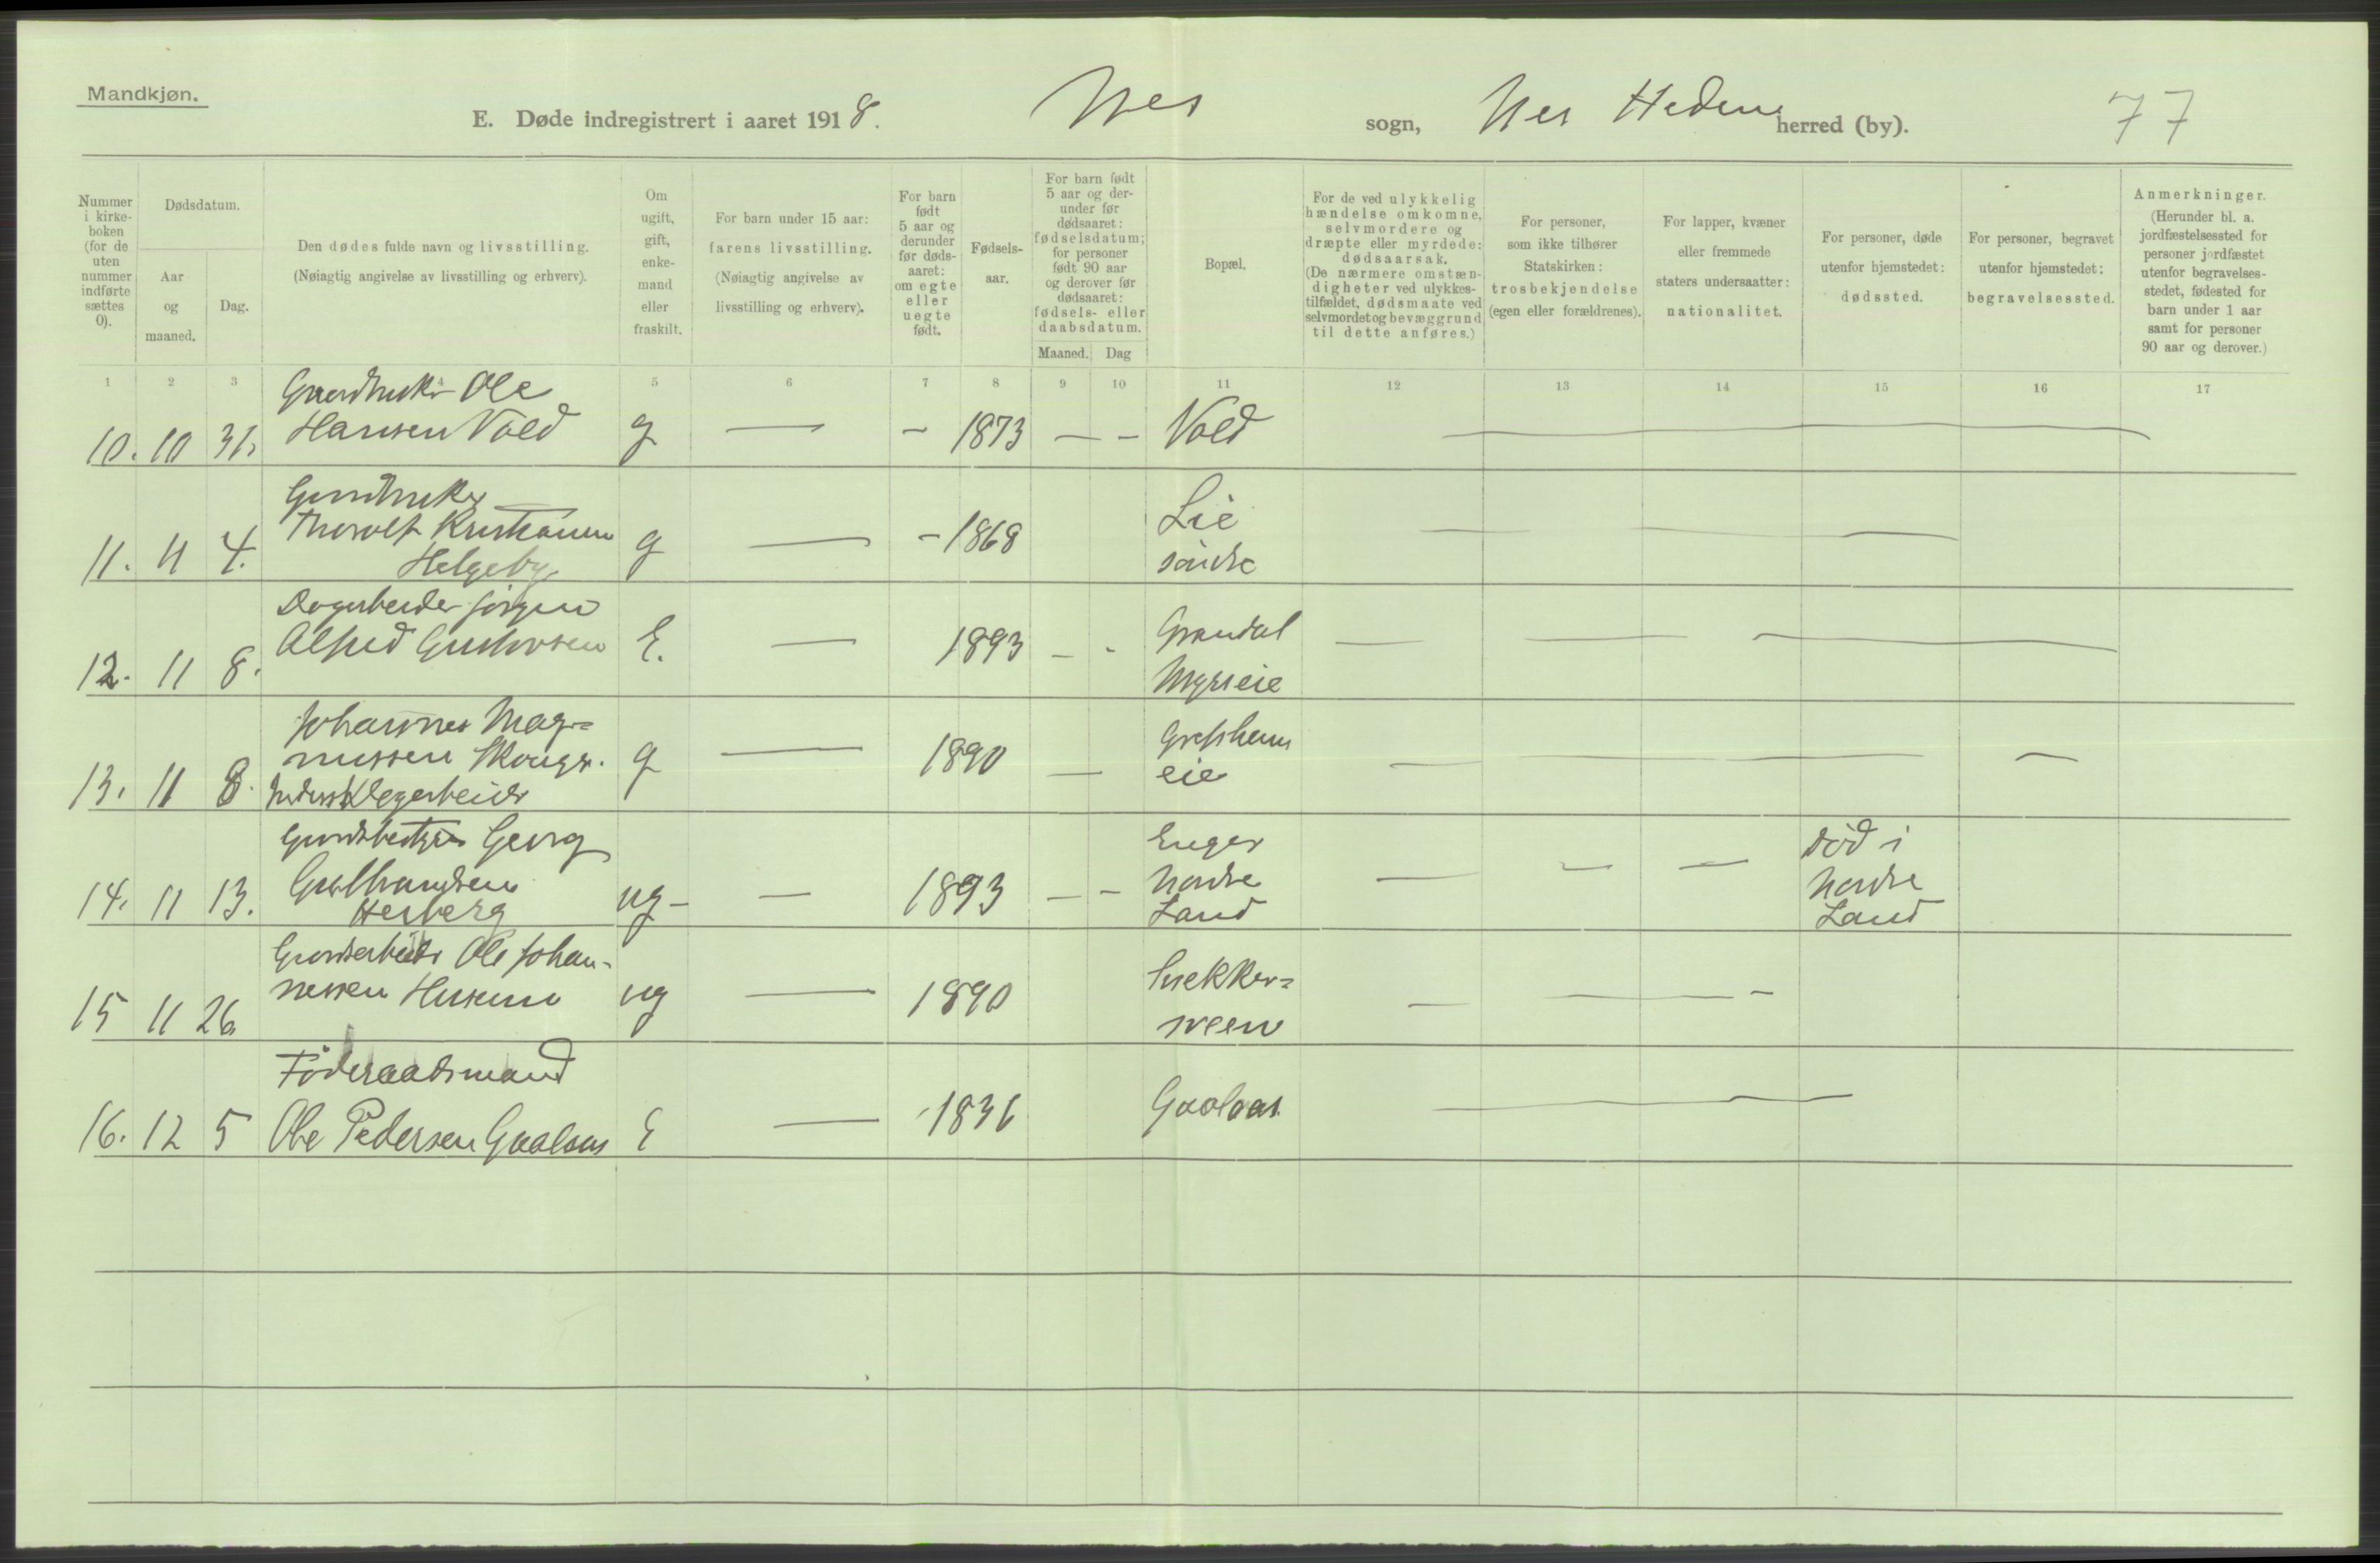 Mandkjøn.
E. Døde indregistrert i aaret 1918. Nes sogn, Nes Hedem herred (by). 77
Nummer i kirke-boken (for de uten nummer indførte sættes 0).
Dødsdatum.
Aar og maaned.
Dag.
Den dødes fulde navn og livsstilling.
(Nøiagtig angivelse av livsstilling og erhverv).
Om ugift, gift, enke-mand eller fraskilt.
For barn under 15 aar: farens livsstilling. (Nøiagtig angivelse av livsstilling og erhverv).
For barn født 5 aar og derunder før døds-aaret: om egte eller uegte født.
Fødsels-aar.
For barn født 5 aar og der-under før dødsaaret: fødselsdatum; for personer født 90 aar og derover før dødsaaret: fødsels- eller daabsdatum.
Maaned. Dag
Bopæl.
For de ved ulykkelig hændelse omkomne, selvmordere og dræpte eller myrdede: dødsaarsak. (De nærmere omstæn-digheter ved ulykkes-tilfældet, dødsmaate ved selvmordet og bevæggrund til dette anføres.)
For personer, som ikke tilhører Statskirken: trosbekjendelse (egen eller forældrenes).
For lapper, kvæner eller fremmede staters undersaatter: nationalitet.
For personer, døde utenfor hjemstedet: dødssted.
For personer, begravet utenfor hjemstedet: begravelsessted.
Anmerkninger. (Herunder bl. a. jordfæstelsessted for personer jordfæstet utenfor begravelses-stedet, fødested for barn under 1 aar samt for personer 90 aar og derover.)
1 2 3 4 5 6 7 8 9 10 11 12 13 14 15 16 17
Gaardbruker Ole
10. 10 31. Hansen Vold g — – 1873 — – Vold —
Gaardbruker Lie
11. 11 4. Thorolf Kristiansen g — – 1868 søndre — — —
Helgeby
Dagarbeider Jørgen Grandal
12. 11 8. Alfred Gustavsen E. — 1893 – - Myrseie — — —
Johannes Mag= Grefsheim
13. 11 8. nussen Skougs. g — 1890 — eie — — — —
Dagarbeider
Gaardsbestyrer Georg Enger død i
14. 11 13. Gulbrandsen ug – — 1893 — – Nordre — – — Nordre
Herberg Land Land
Gaardsarbeider Ole Johan- Snekker=
15 11 26 nessen Husum ug — 1890 sveen — — –
Føderaadsmand
16. 12 5 Ole Pedersen Gaalaas E — 1836 Gaalaas — —